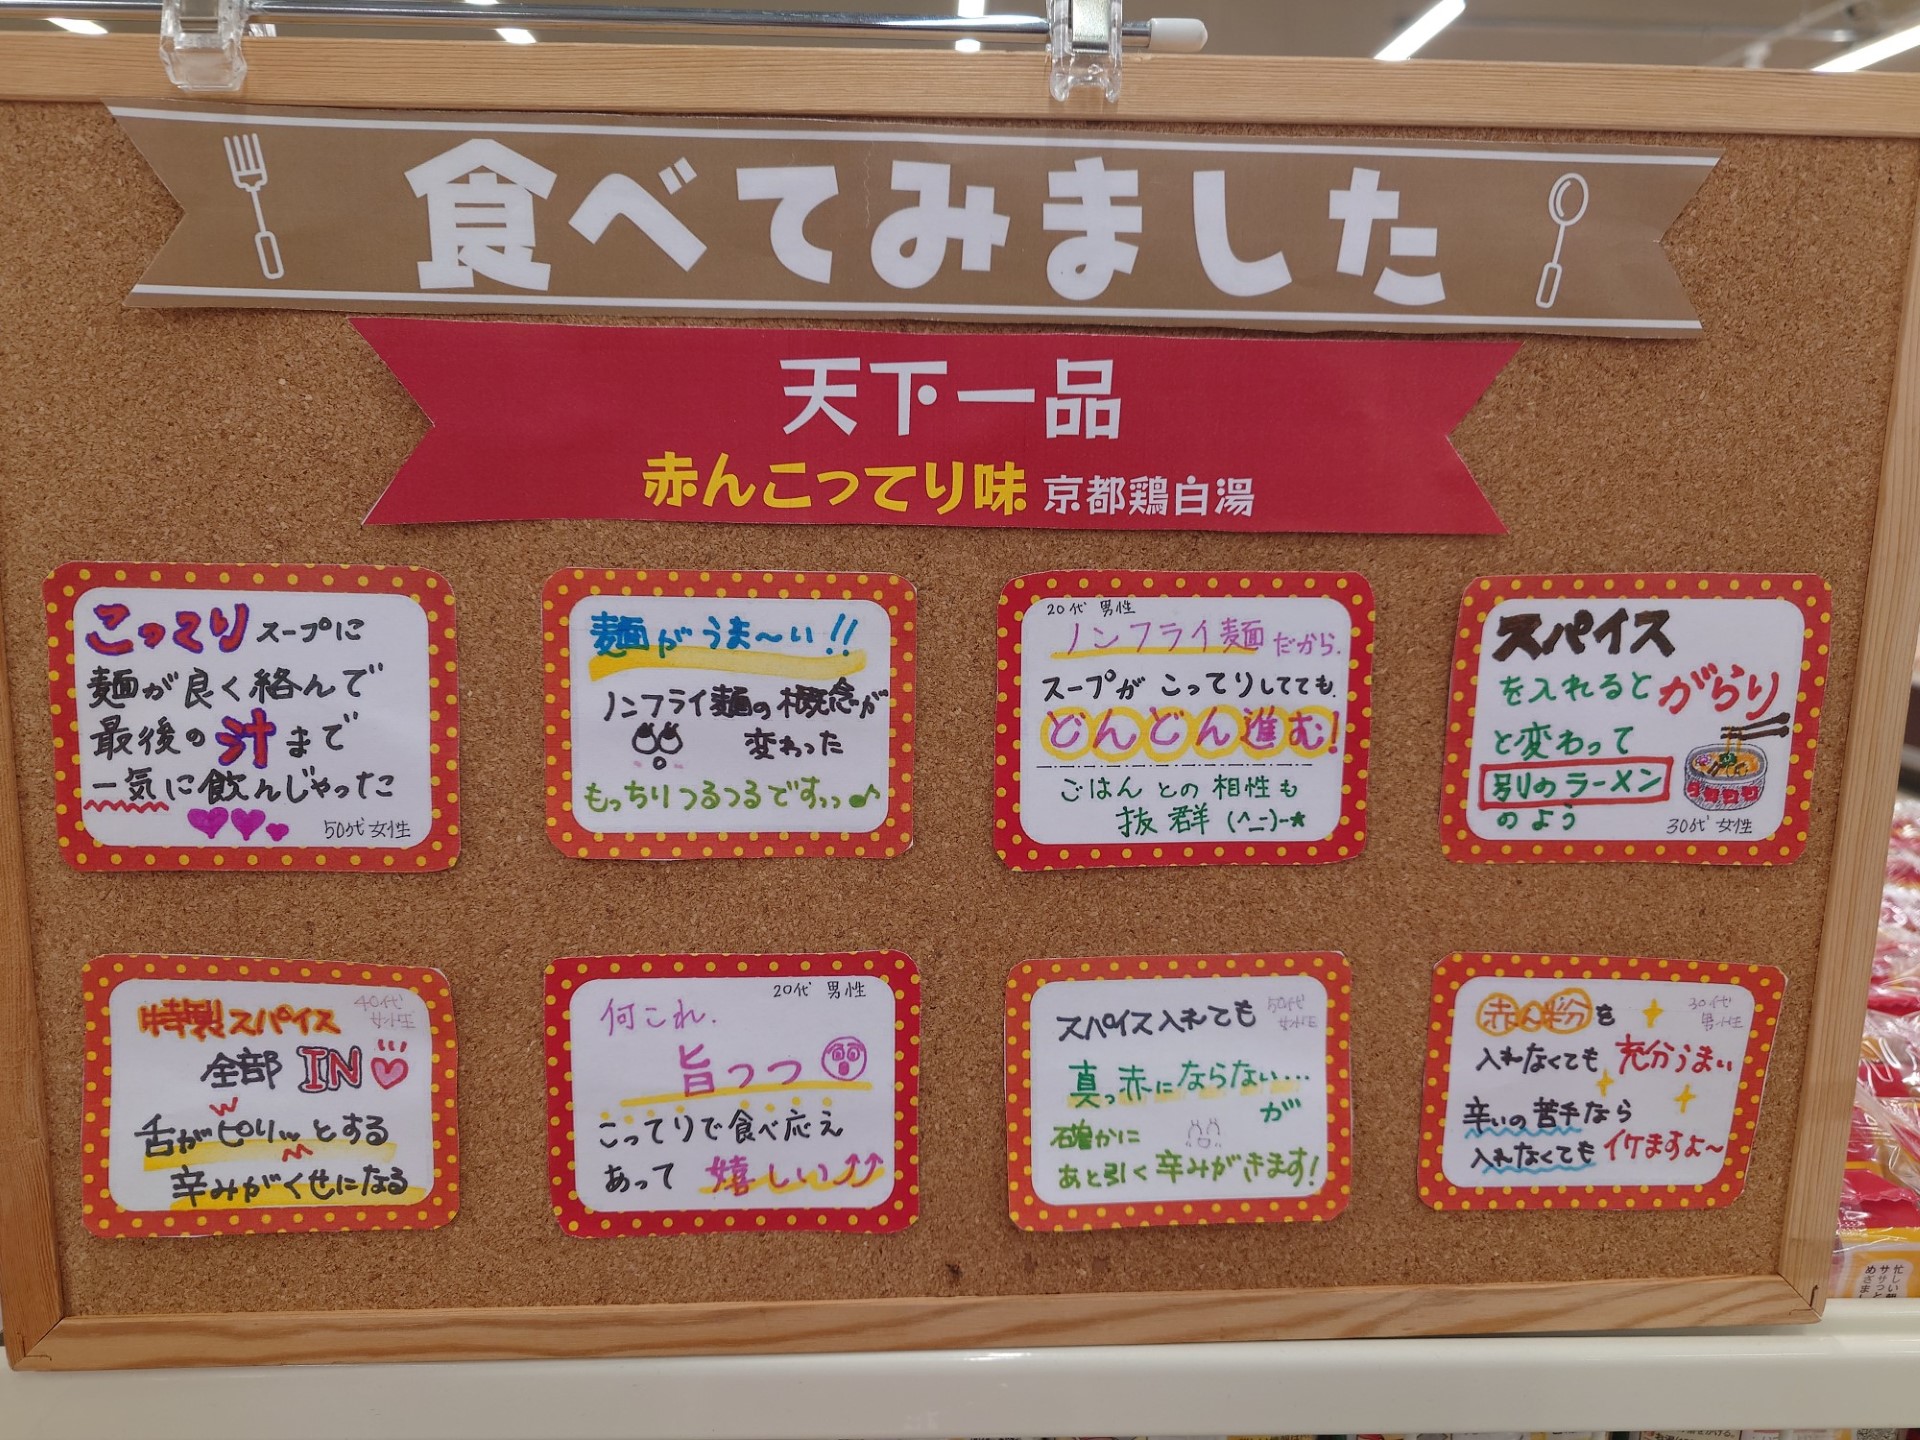 食べてみました
天下一品
赤んこってり味 京都鶏白湯
こってりスープに
麺が良く絡んで
最後の汁まで
一気に飲んじゃった
50代 女性
麺がうま〜い!!
ノンフライ麺の概念が
変わった
もっちりつるつるですっっ♪
20代 男性
ノンフライ麺だから、
スープがこってりしてても、
どんどん進む!
ごはんとの相性も
抜群 (^_-)-★
スパイス
を入れるとがらり
と変わって
別のラーメン
のよう
30代 女性
特製スパイス
40代
女性
全部 IN
舌がピリッとする
辛みがくせになる
20代 男性
何これ、
旨っっ
こってりで食べ応え
あって 嬉しい⤴⤴
スパイス入れても
50代
女性
真っ赤にならない…
が
確かに
あと引く辛みがきます!
赤ん粉を
30代
男性
入れなくても充分うまい
辛いの苦手なら
入れなくてもイケますよ〜